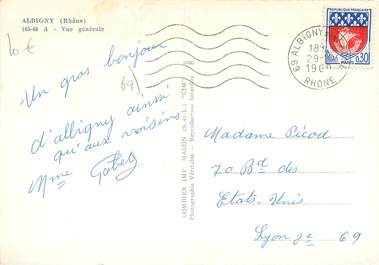 ALBIGNY (Rhône)
165-68 A - Vue générale
10 €
69)
Un gros bonjour
d'albigny ainsi
qu'aux voisins
Mme
COMBIER IMP. MACON (S.-et-L.) "CIM"
Photographie Véritable - Reproduction Interdite
69 ALBIGNY
18H
29-
19
RHONE
REPUBLIQUE FRANÇAISE
0,30
Madame Picod
70 Bd des
Etats-Unis
Lyon 8e 69